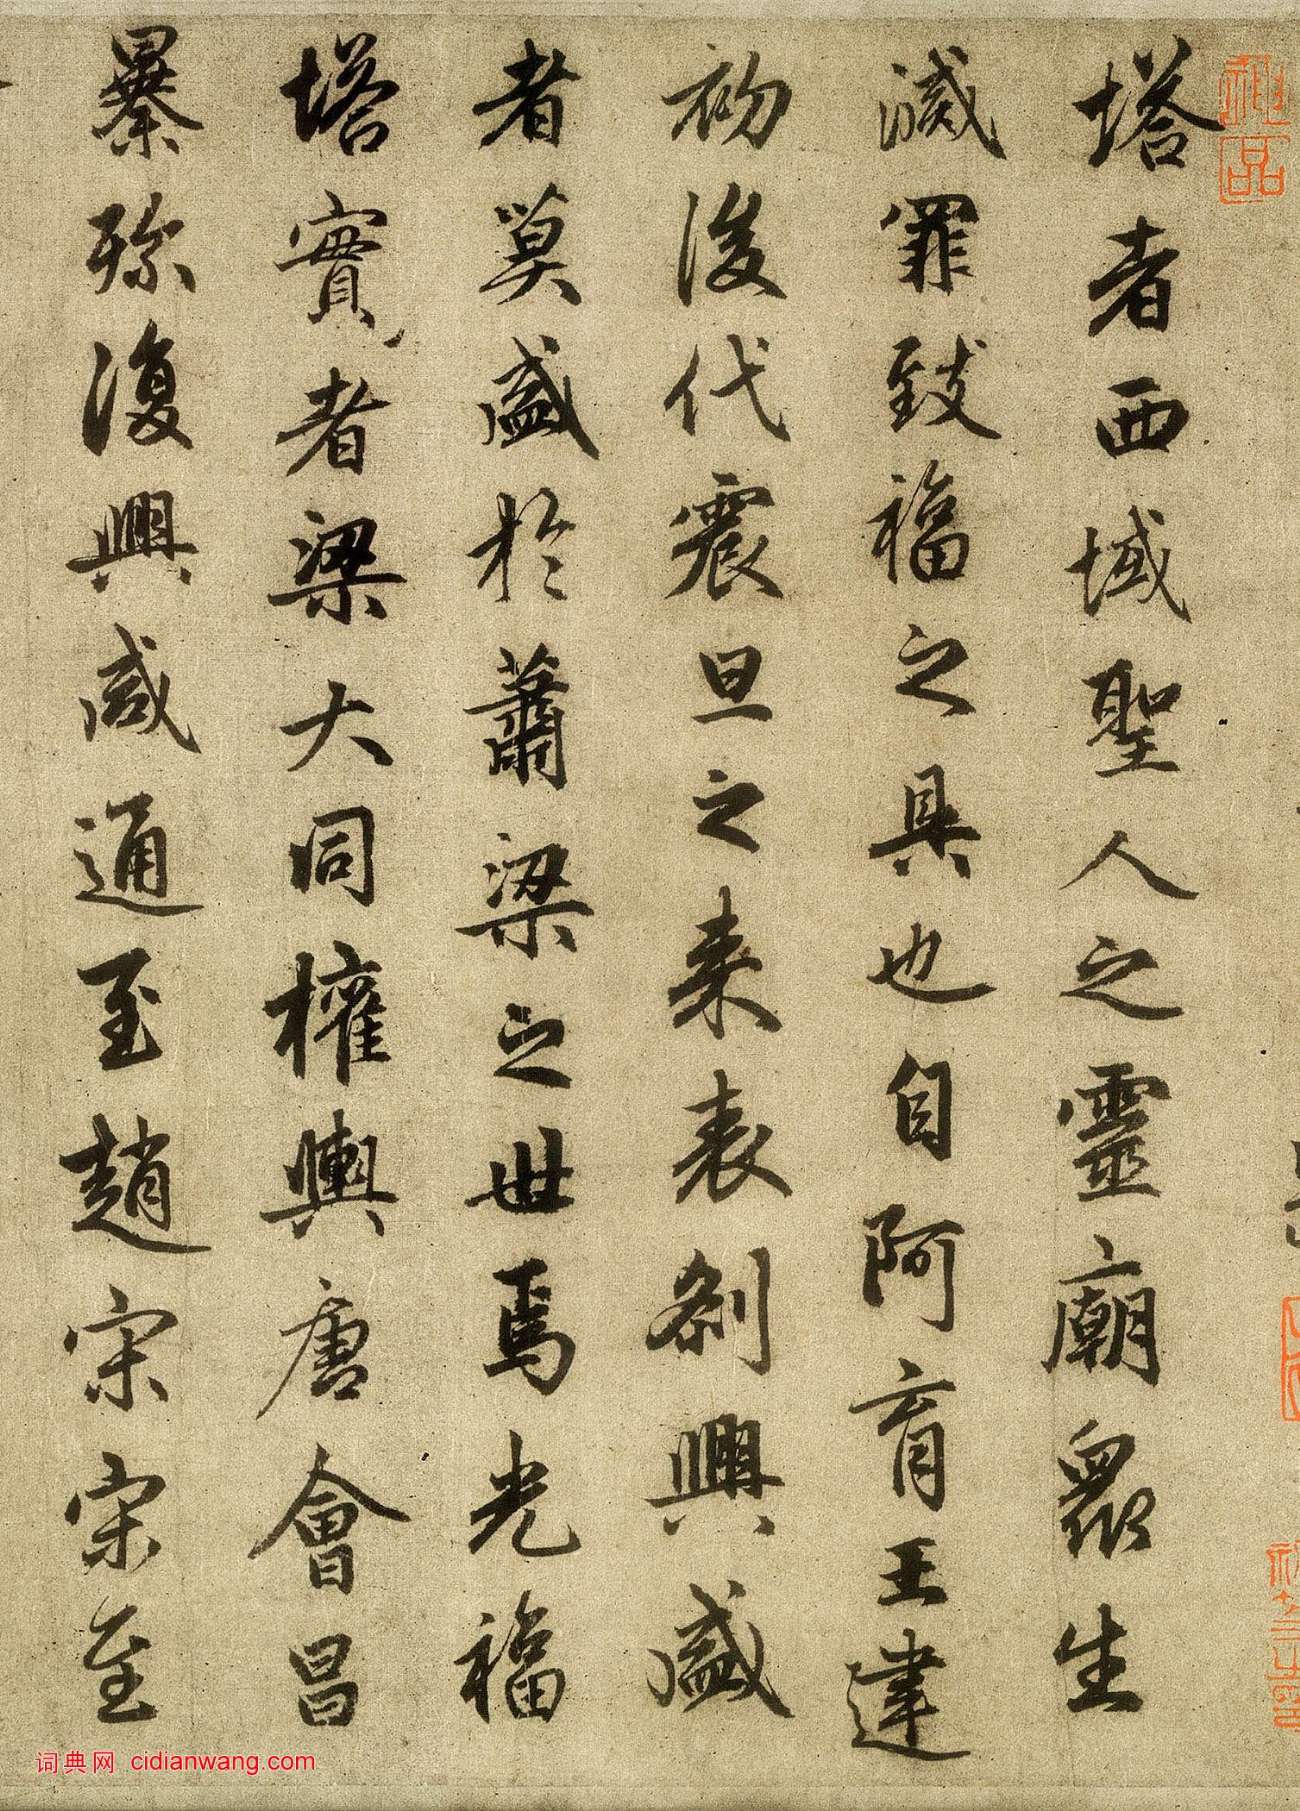 塔者西域聖人之靈廟眾生
滅罪致福之具也自阿育王建
初後代震旦之來表剎興盛
者莫盛於蕭梁之世焉光福
塔實者梁大同權輿唐會昌
彌復興咸通至趙宋宋至
神品
词典网 cidianwang.com